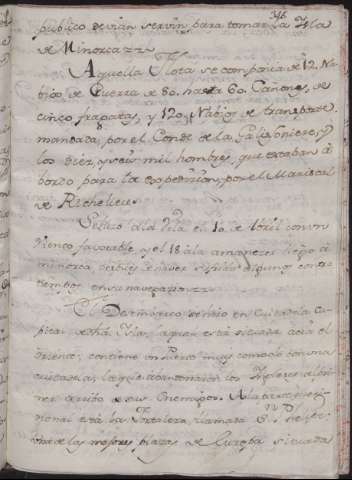 346
publico devian servir para tomar la Isla
de Minorca
Aquella Flota se componia de 12 Na
bios de Guerra de 80. hasta 60. Cañones, de
cinco fragatas, y 120 Nabios de transporte
mandada por el Conde de la Galisoniere, y
los diez, y seis mil hombres, que estaban á
bordo para la expedicion, por el Mariscal
de Richelieu
el 10 de Abril con un
viento favorable y el 18 á la amanecer llego á
minorca despues de haver sufrido algunos contra
tiempos en su navegacion
El Desembarco se hizo en Ciutadela Ca
pital de dha Isla, la qual está situada acia el
Oriente; contiene un Puerto muy comodo con una
ciudadela, la que abandonaron los Ingleses al pri
mer arribo de sus Enemigos. A la parte
nional está la Fortaleza llamada Sn. Phelipe
una de las mejores plazas de Europa situada